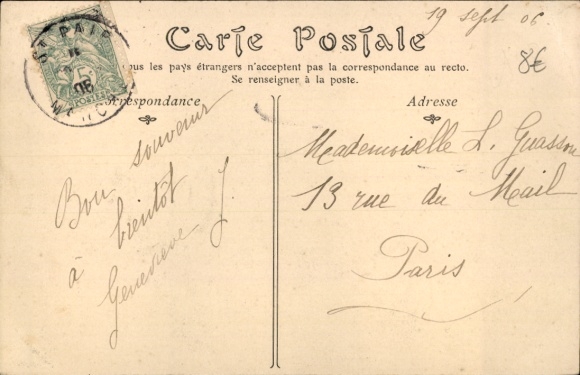 19 sept 06.
8€
Carte Postale
ous les pays étrangers n'acceptent pas la correspondance au recto.
Se renseigner à la poste.
rrespondance
Adresse
ST PAIR
5
POSTES
06
Bon souvenir
à bientôt
Geneviève J.
Mademoiselle L.
13 rue du Mail
Paris